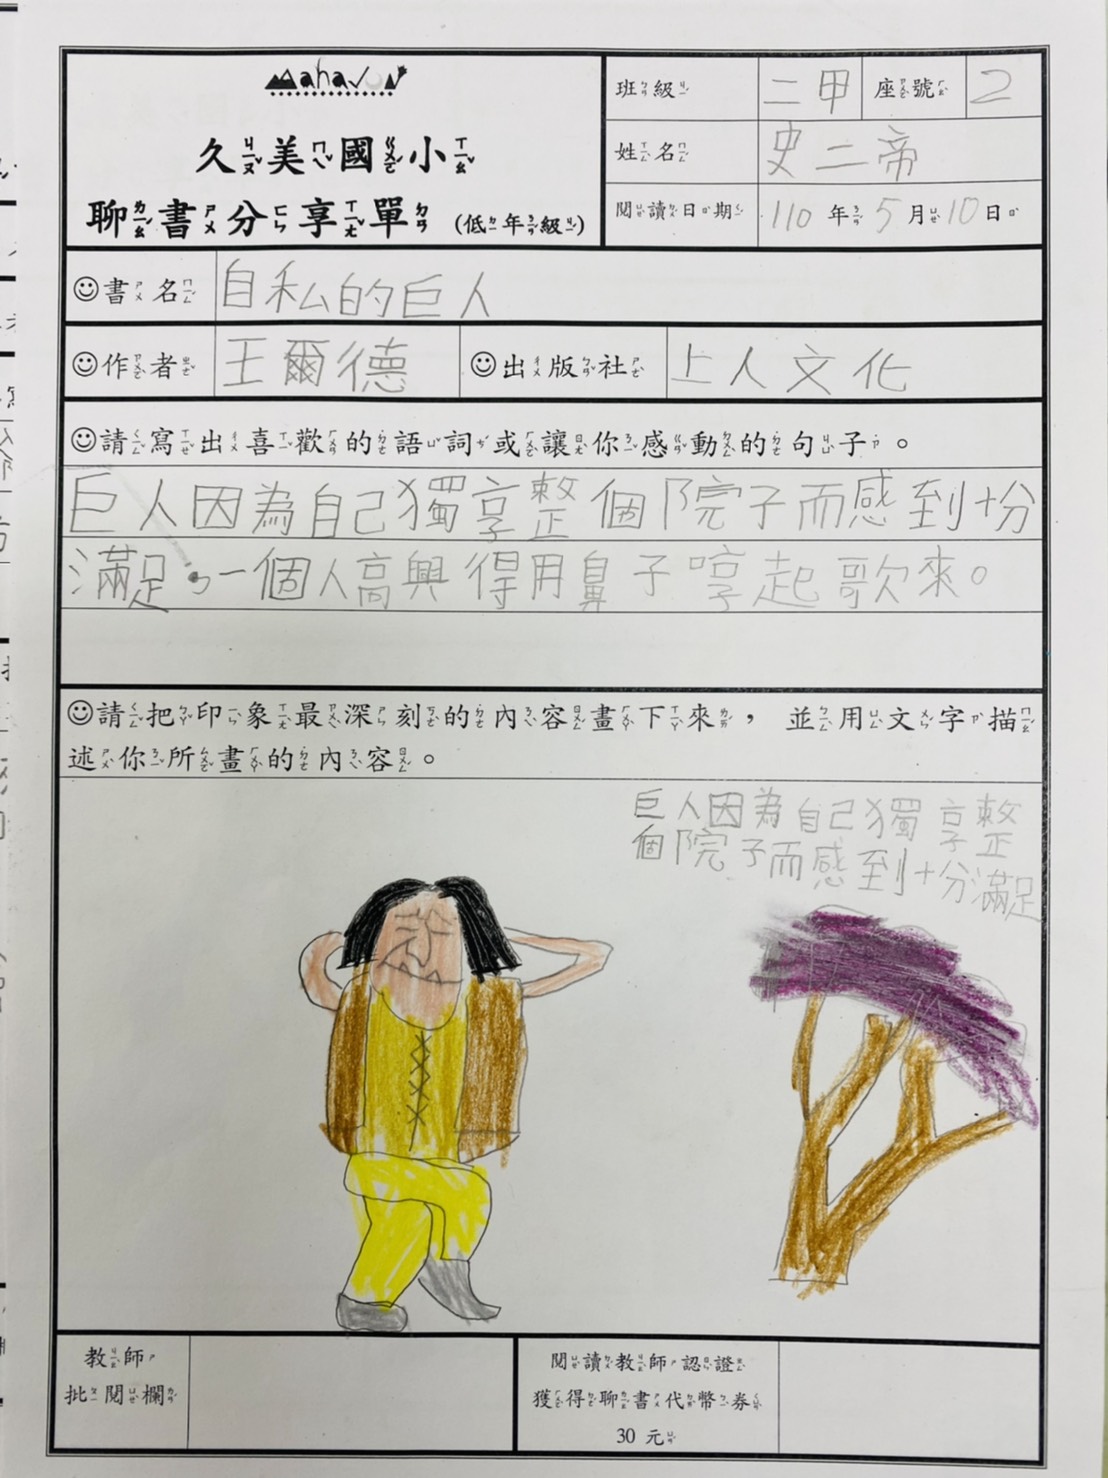 Mahavun
久美國小
聊書分享單 (低年級)
班級 二甲 座號 2
姓名 史二帝
閱讀日期 110年5月10日
☺書名 自私的巨人
☺作者 王爾德 ☺出版社 上人文化
☺請寫出喜歡的語詞或讓你感動的句子。
巨人因為自己獨享整個院子而感到十分
滿足,一個人高興得用鼻子哼起歌來。
☺請把印象最深刻的內容畫下來,並用文字描
述你所畫的內容。
巨人因為自己獨享整
個院子而感到十分滿足
教師
批閱欄
閱讀教師認證
獲得聊書代幣券
30 元